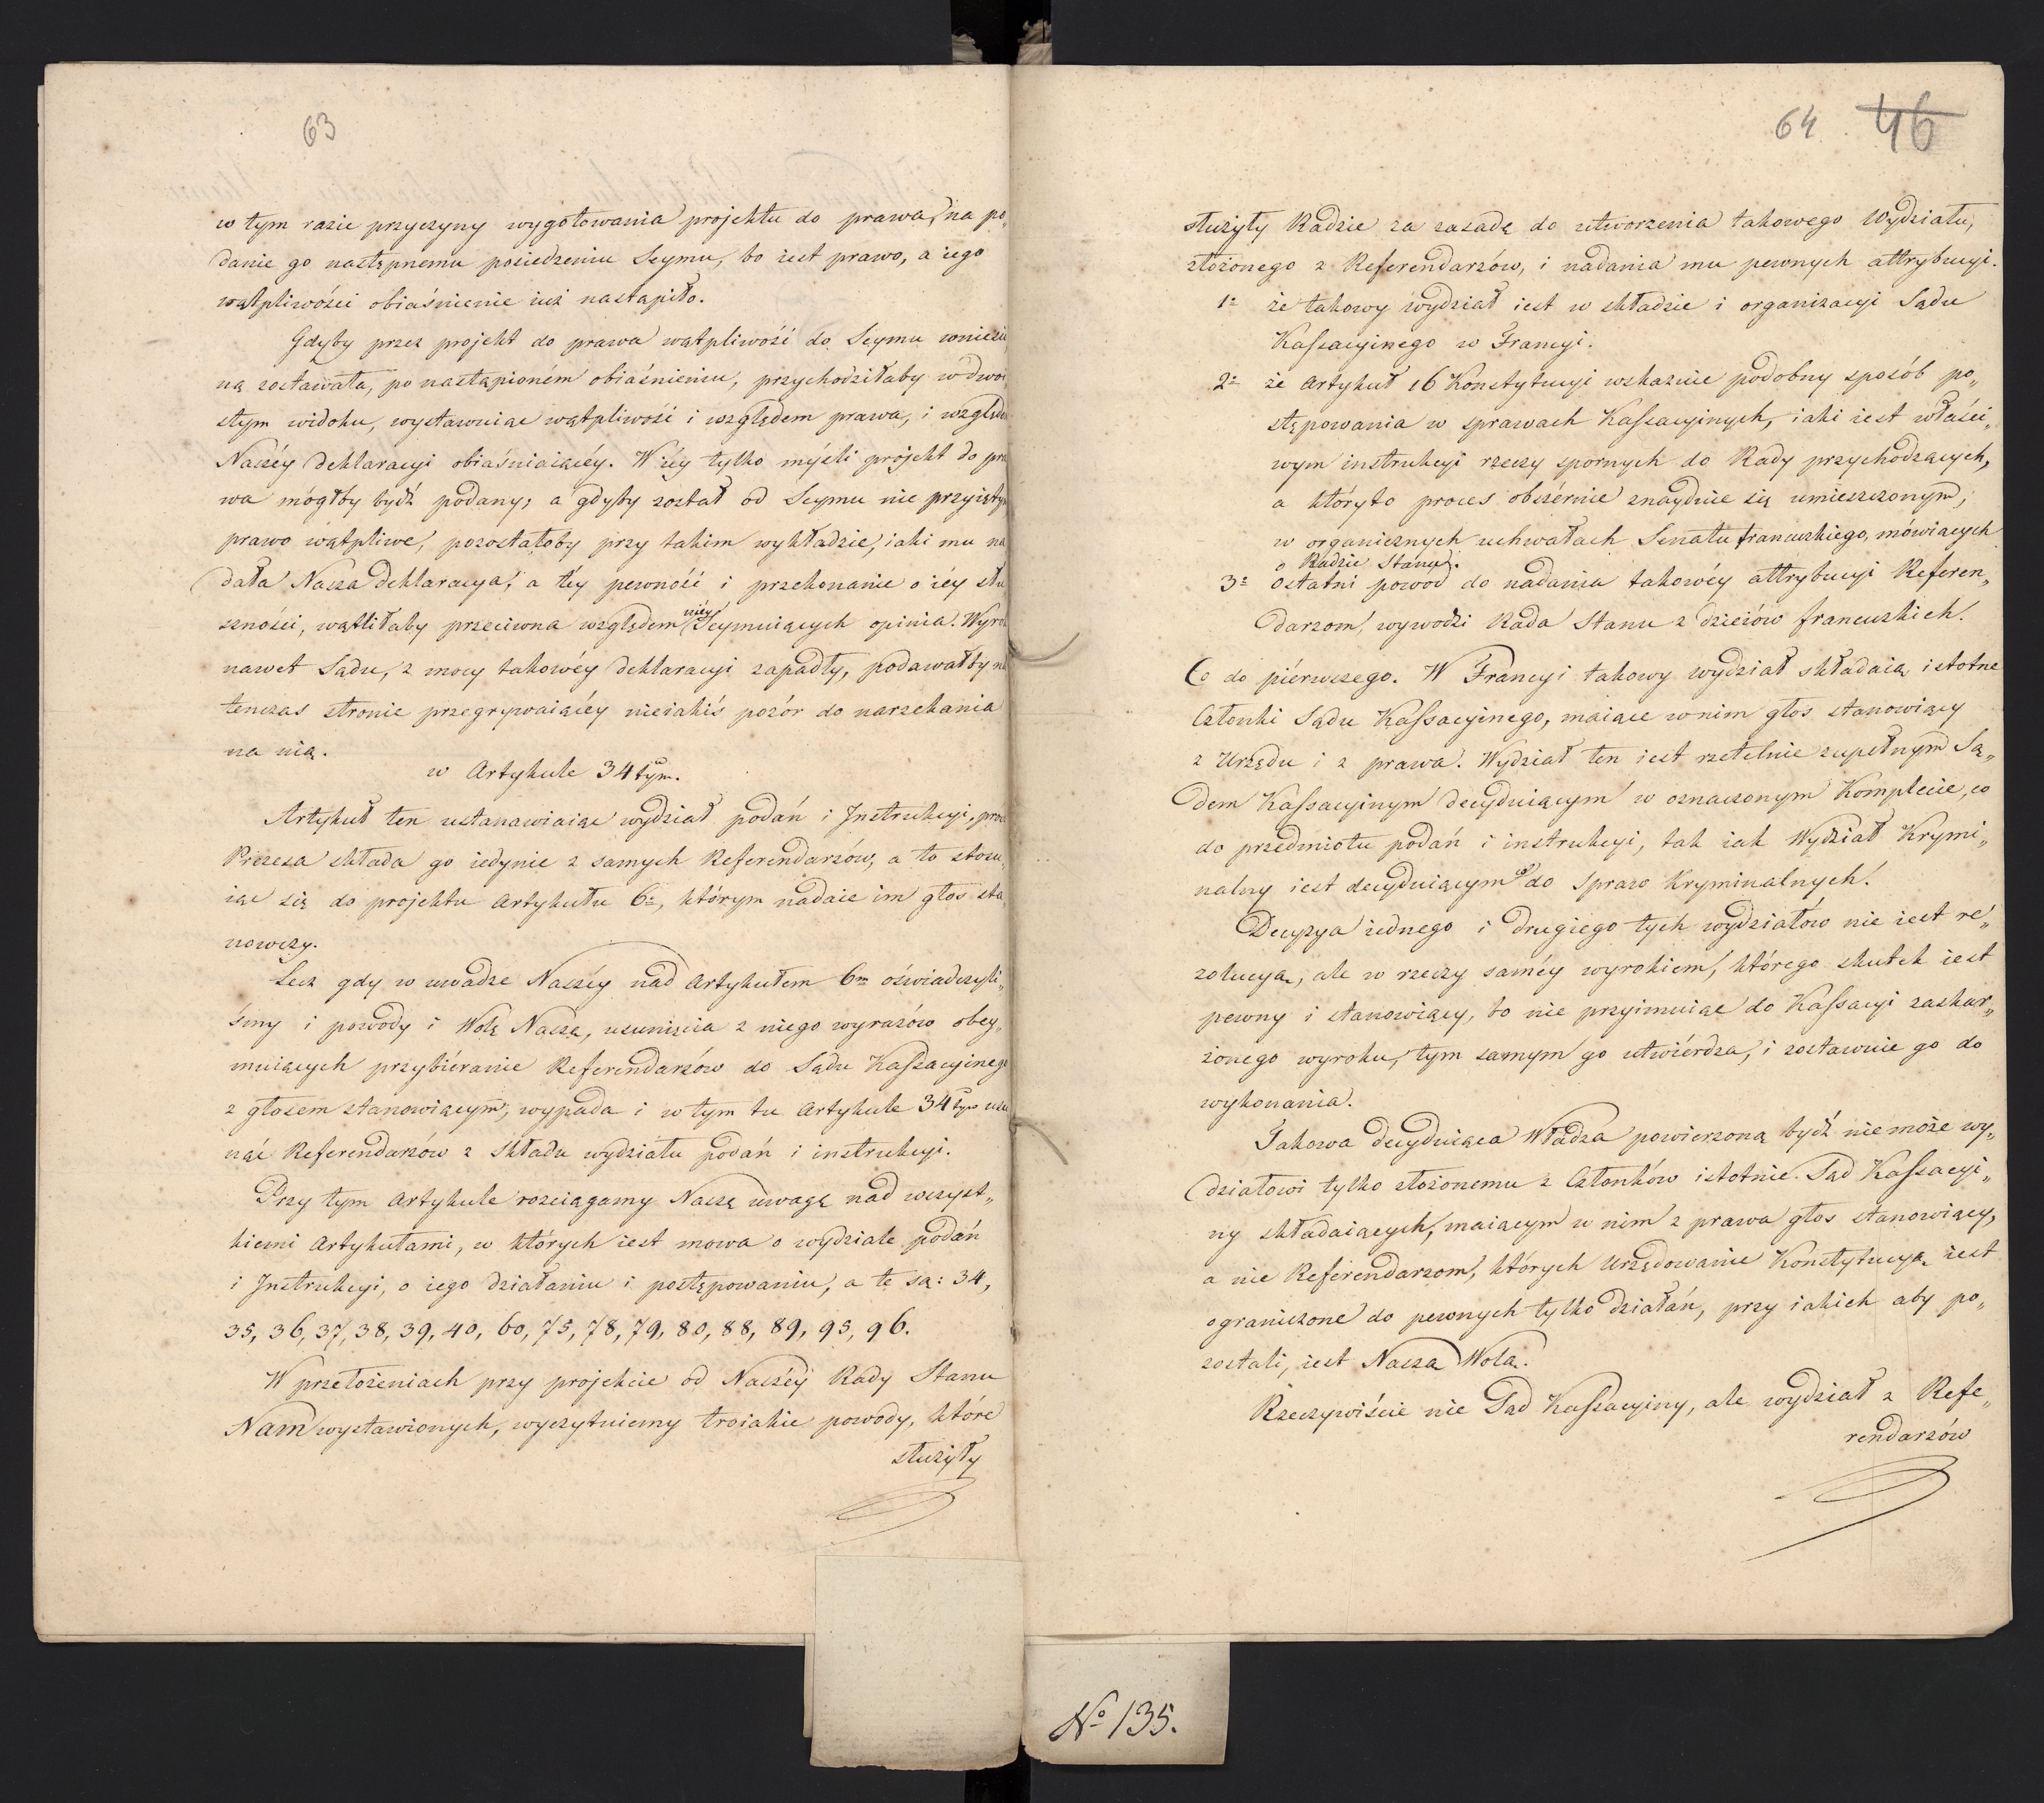 63
w tym razie przyczyny wygotowania projektu do prawa, na po„
danie go następnemu posiedzeniu Seymu, bo iest prawo, a iego
wątpliwości obiaśnienie iuż nastąpiło.
Gdyby przez projekt do prawa wątpliwość do Seymu wniesio
ną zostawała, po nastąpioném obiaśnieniu, przychodziłaby w dwoi
stym widoku, wystawuiąc wątpliwość i względem prawa, i względem
Naszéy deklaracyi obiaśniaiącéy. W téy tylko myśli projekt do pra
wa mógłby bydź podany; a gdyby został od Seymu nie przyiętym
prawo wątpliwe, pozostałoby przy takim wykładzie, iaki mu na
dała Nasza deklaracya, a téy pewność i przekonanie o iéy słu
szności, wątliłaby przeciwna względem niéy Seymuiących opinia. Wyrok
nawet Sądu, z mocy takowéy deklaracyi zapadły, podawałby na
tenczas stronie przegrywaiącéy nieiakiś pozór do narzekania
na nią.
w Artykule 34tym.
Artykuł ten ustanawiaiąc wydział podań i Instrukcyi, prócz
Prezesa składa go iedynie z samych Referendarzów, a to stosu„
iąc się do projektu Artykułu 6o, którym nadaie im głos sta„
nowczy.
Lecz gdy w uwadze Naszéy nad Artykułem 6m oświadczyli„
śmy i powody i Wolę Naszę, usunięcia z niego wyrazów obey„
muiących przybiéranie Referendarzów do Sądu Kassacyinego
z głosem stanowiącym, wypada i w tym tu Artykule 34tym usu
nąć Referendarzów z składu wydziału podań i instrukcyi.
Przy tym Artykule rozciągamy Naszę uwagę nad wszyst„
kiemi Artykułami, w których iest mowa o wydziale podań
i Instrukcyi, o iego działaniu i postępowaniu, a te są: 34,
35, 36, 37, 38, 39, 40, 60, 75, 78, 79, 80, 88, 89, 95, 96.
W przełożeniach przy projekcie od Naszéy Rady Stanu
Nam wystawionych, wyczytuiemy troiakie powody, które
służyły
64 46
służyły Radzie za zasadę do utworzenia takowego Wydziału,
złożonego z Referendarzów, i nadania mu pewnych attrybucyi.
1o że takowy wydział iest w składzie i organizacyi Sądu
Kassacyinego w Francyi.
2o że Artykuł 16 Konstytucyi wskazuie podobny sposób po„
stępowania w sprawach Kassacyinych, iaki iest właści„
wym instrukcyi rzeczy spornych do Rady przychodzących,
a któryto proces obszérnie znayduie się umieszczonym,
w organicznych uchwałach Senatu francuzkiego, mówiących
o Radzie Stanu.
3o ostatni powód do nadania takowéy attrybucyi Referen„
darzom, wywodzi Rada Stanu z dzieiów francuzkich.
Co do piérwszego. W Francyi takowy wydział składaią istotne
Członki Sądu Kassacyinego, maiące w nim głos stanowiący
z Urzędu i z prawa. Wydział ten iest rzetelnie zupełnym Są„
dem Kassacyinym decyduiącym w oznaczonym Komplecie, co
do przedmiotu podań i instrukcyi, tak iak Wydział Krymi„
nalny iest decyduiącym co do Spraw Kryminalnych.
Decyzya iednego i drugiego tych wydziałów nie iest re„
zolucyą, ale w rzeczy saméy wyrokiem, którego skutek iest
pewny i stanowiący, bo nie przyimuiąc do Kassacyi zaskar„
żonego wyroku, tym samym go utwiérdza, i zostawuie go do
wykonania.
Takowa decyduiąca Władza powierzoną bydź nie może wy„
działowi tylko złożonemu z Członków istotnie Sąd Kassacyi„
ny składaiących, maiącym w nim z prawa głos stanowiący,
a nie Referendarzom, których Urzędowanie Konstytucyą iest
ograniczone do pewnych tylko działań, przy iakich aby po„
zostali, iest Nasza Wola.
Rzeczywiście nie Sąd Kassacyiny, ale wydział z Refe„
rendarzów
No 135.